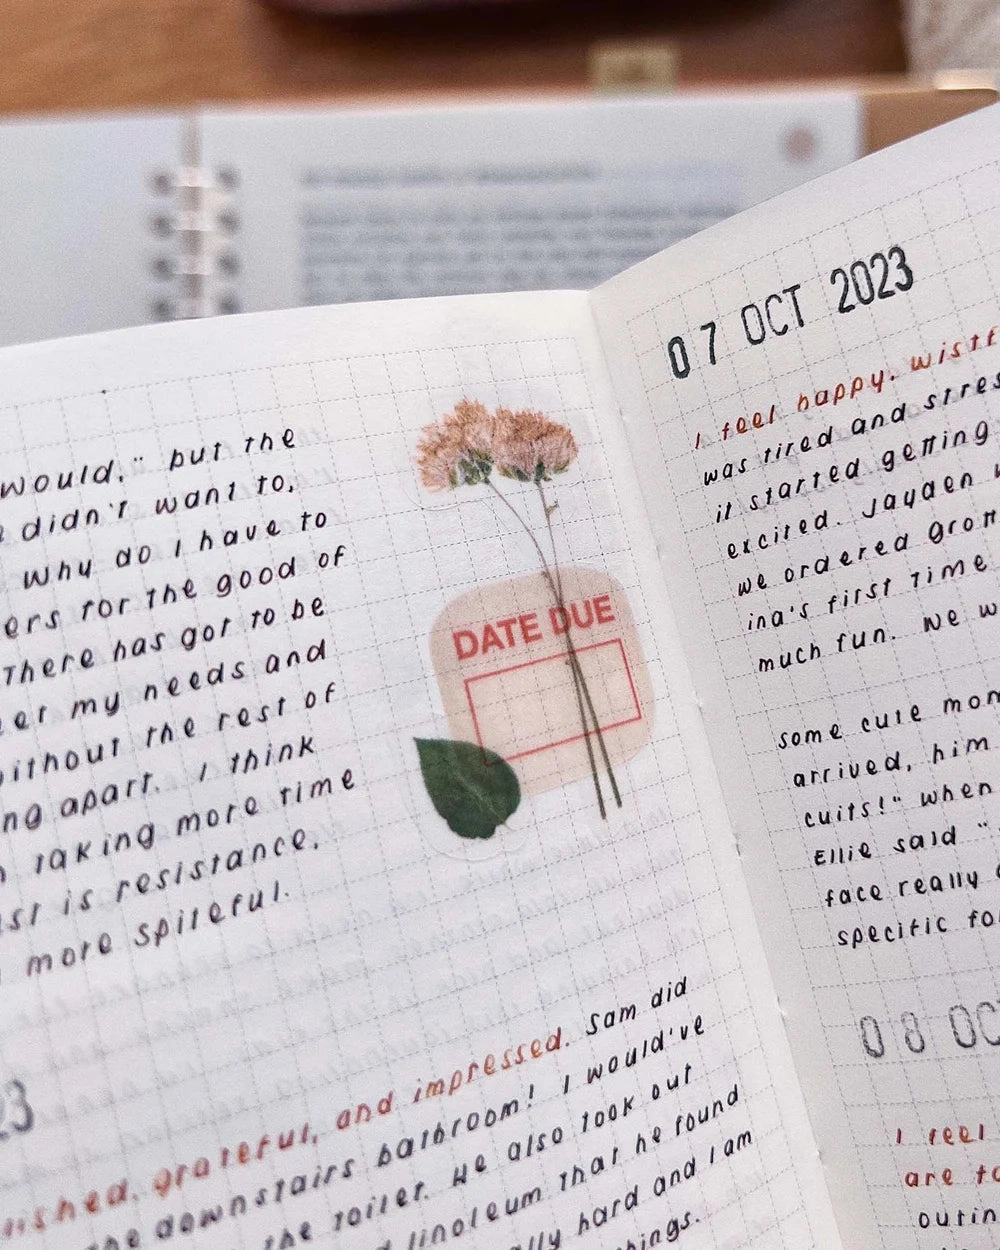 would," but the
didn't want to,
why do I have to
ers for the good of
There has got to be
my needs and
without the rest of
ng apart. I think
taking more time
is resistance,
more spiteful.
DATE DUE
23
grateful, and impressed. Sam did
the downstairs bathroom! I would've
the toilet. He also took out
linoleum that he found
lly hard and I am
07 OCT 2023
I feel happy, wistf
was tired and stres
it started getting
excited. Jayden
we ordered grott
ina's first time
much fun. We w
some cute mom
arrived, him
cuits!" When
Ellie said "
face really
specific fo
08 OC
I feel
are to
outin